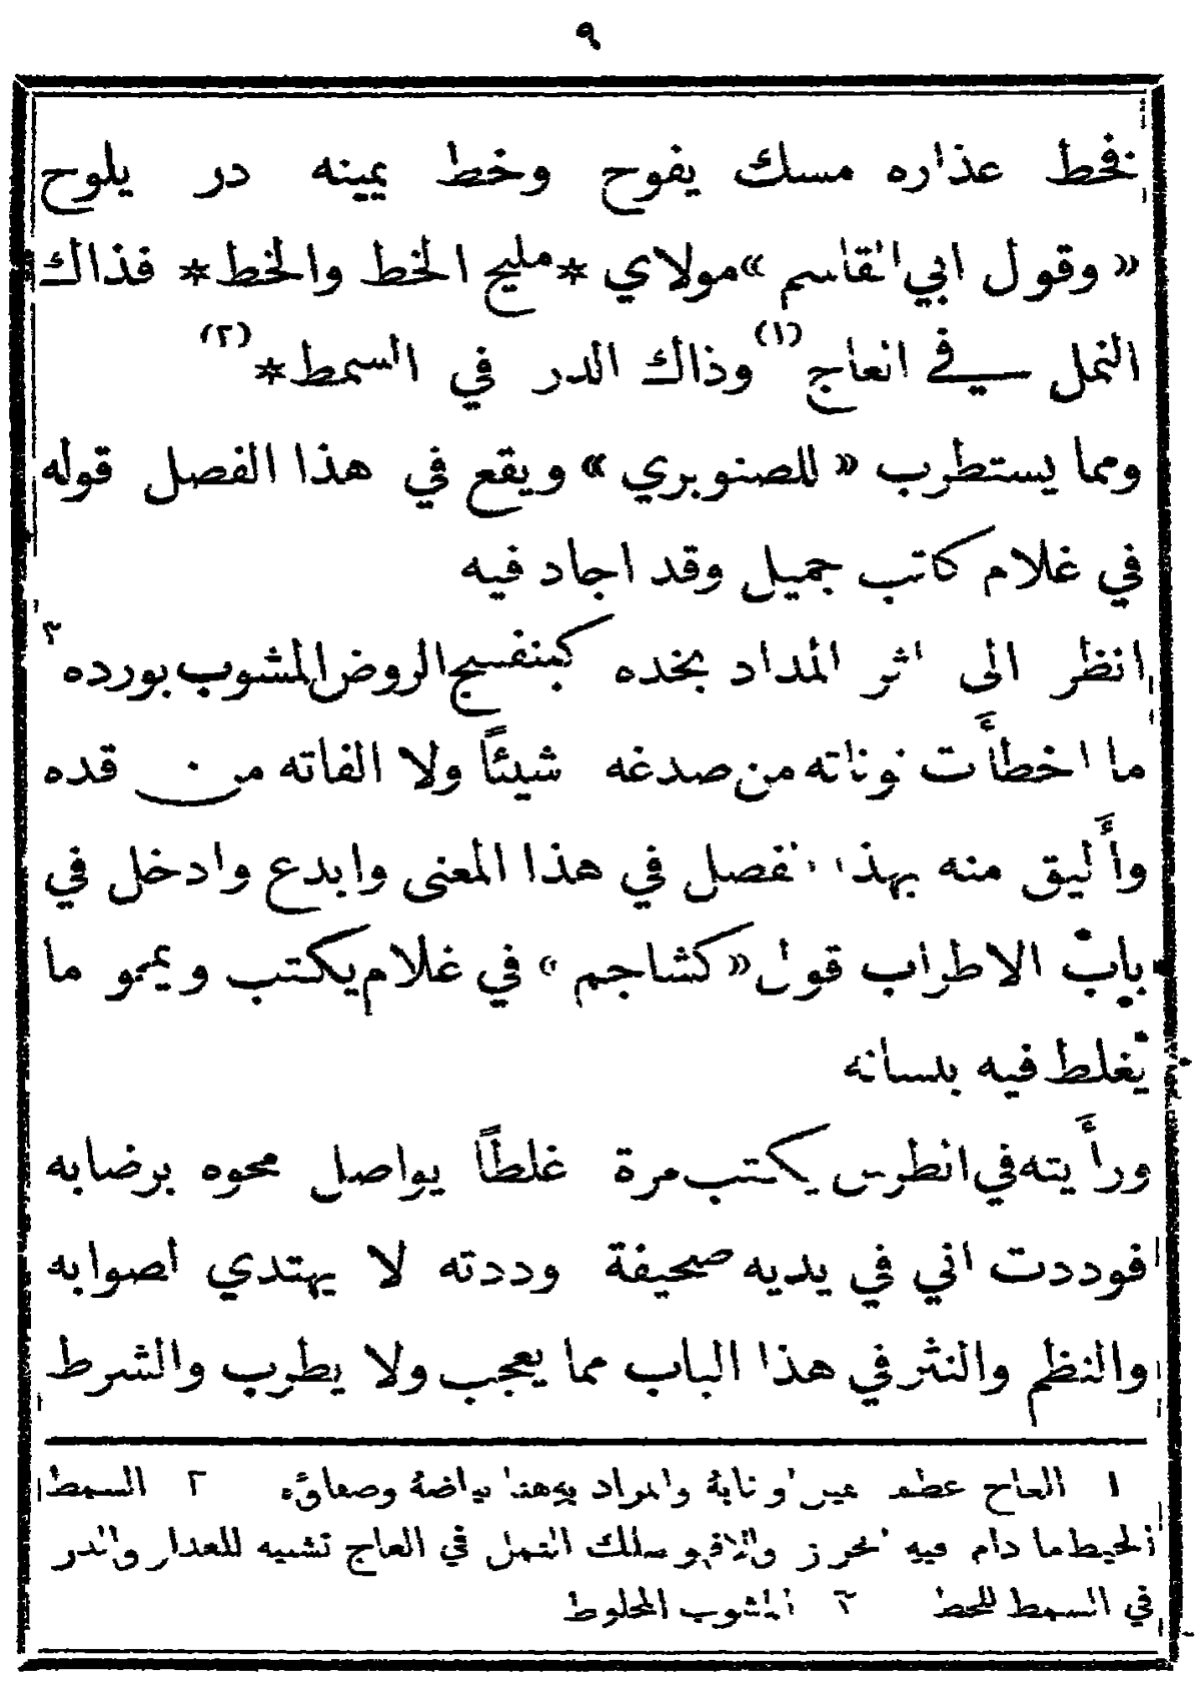 ٩
فخط عذاره مسك يفوح وخط يمينه در يلوح
« وقول ابي القاسم »مولاي *مليح الخط والخط* فذاك
النمل في العاج(١) وذاك الدر في السمط*(٢)
ومما يستطرب « للصنوبري » ويقع في هذا الفصل قوله
في غلام كاتب جميل وقد اجاد فيه
انظر الى اثر المداد بخده كبنفسج الروض المشوب بورده٣
ما اخطأت نوناته من صدغه شيئاً ولا الفاته من قده
وأليق منه بهذا الفصل في هذا المعنى وابدع وادخل في
باب الاطراب قول «كشاجم » في غلام يكتب ويمحو ما
يغلط فيه بلسانه
ورأيته في الطرس يكتب مرة غلطاً يواصل محوه برضابه
فوددت اني في يديه صحيفة وددته لا يهتدي لصوابه
والنظم والنثر في هذا الباب مما يعجب ولا يطرب والشرط
١ العاج عظم او نابه والمراد به هنا بياضه وصفاؤه ٢ السمط
الخيط ما دام فيه الخرز والا فهو سلك النمل في العاج تشبيه للعذار والدر
في السمط للخط ٣ المشوب المخلوط